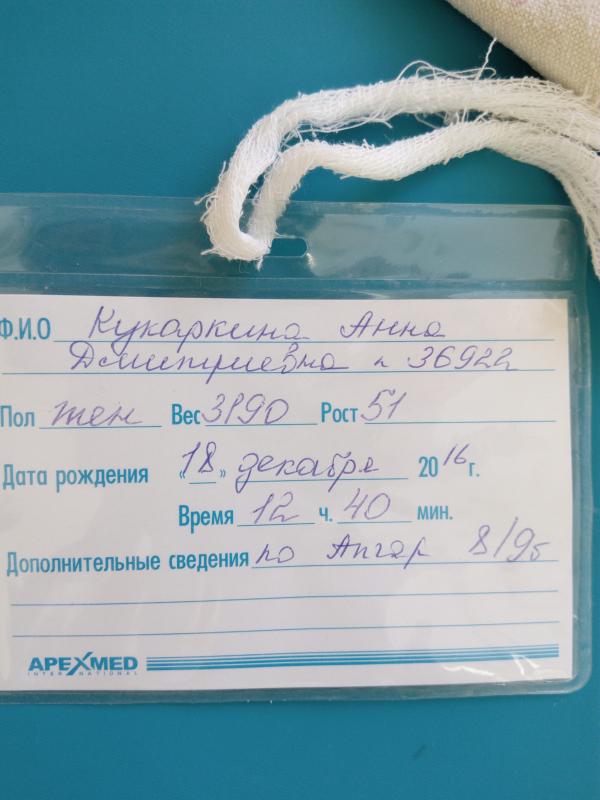 Ф.И.О Кукаркина Анна
Дмитриевна н 36922
Пол жен Вес 3190 Рост 51
Дата рождения «18» декабря 2016г.
Время 12 ч. 40 мин.
Дополнительные сведения по Апгар 8/9б
APEXMED
INTERNATIONAL